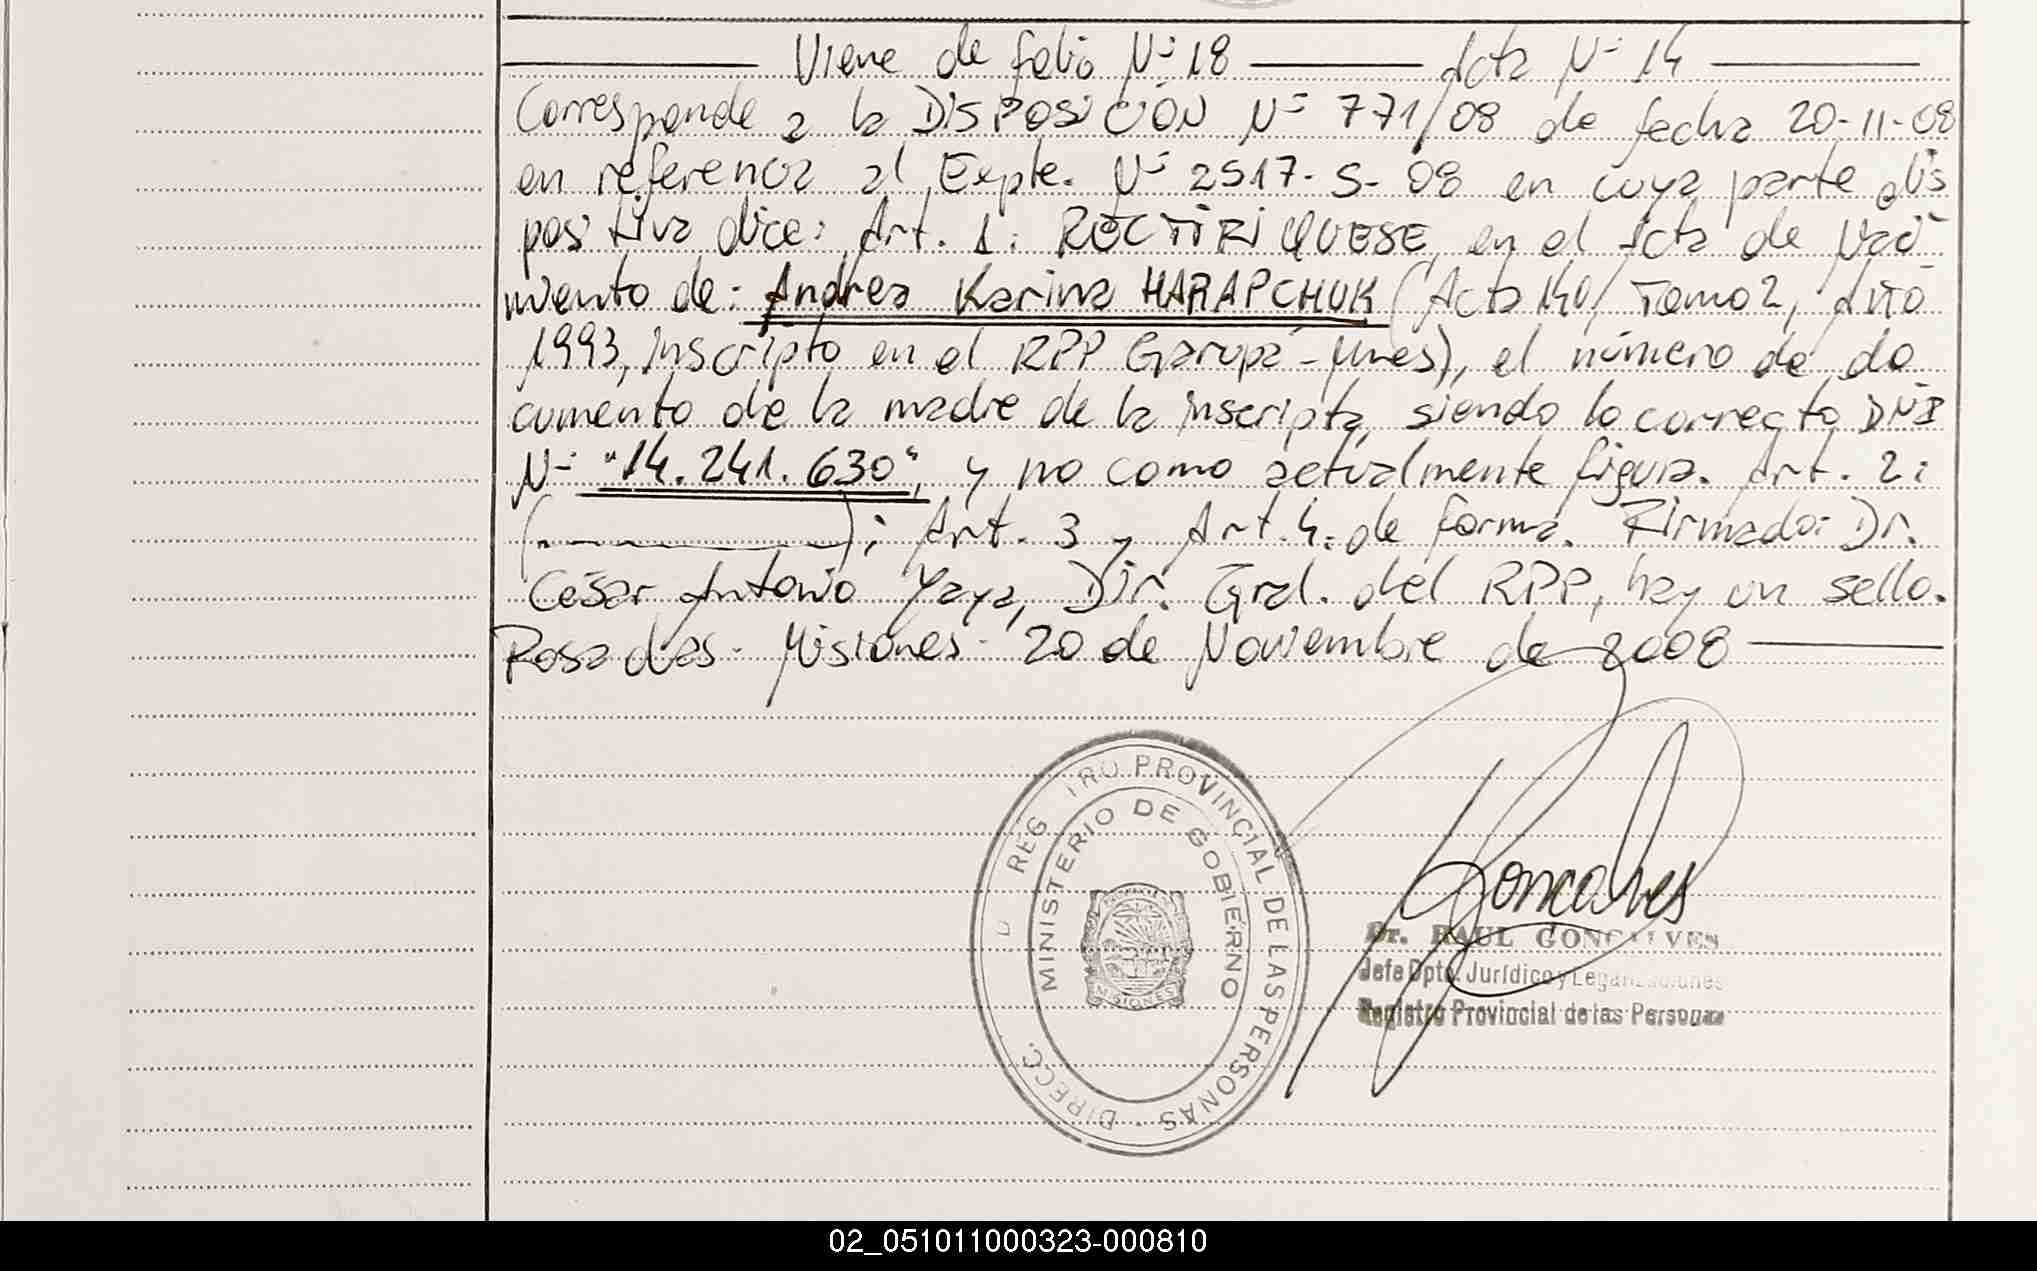 Viene de folio Nº 18 Acta Nº 14
Corresponde a la DISPOSICIÓN Nº 771/08 de fecha 20-11-08
en referencia al Expte. Nº 2517-S-08 en cuya parte dis
positiva dice: Art. 1: RECTIFIQUESE, en el Acta de Naci
miento de: Andrea Karina HARAPCHUK (Acta 140, Tomo 2, Año
1993, inscripto en el RPP Garupá-Mnes), el número de do
cumento de la madre de la inscripta, siendo lo correcto DNI
Nº "14.241.630", y no como actualmente figura. Art. 2:
( ); Art. 3 y Art. 4: de forma. Firmado: Dr.
César Antonio Yaya, Dir. Gral. del RPP, hay un sello.
Posadas- Misiones- 20 de Noviembre de 2008
REG TRO PROVINCIAL DE LAS PERSONAS - DIRECC.
MINISTERIO DE GOBIERNO
MISIONES
Goncalves
Dr. RAUL GONCALVES
Jefe Dpto. Jurídico y Legalizaciones
Registro Provincial de las Personas
02_051011000323-000810